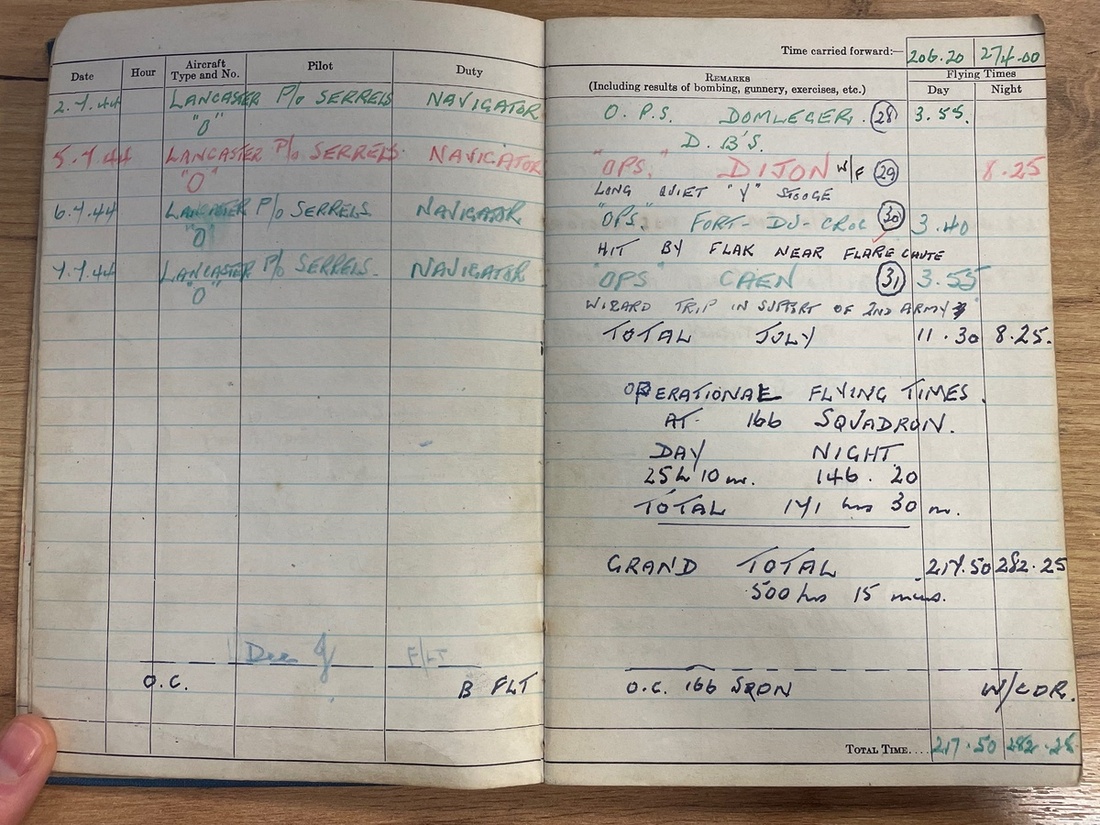 Time carried forward:— 206.20 274.00
Date Hour Aircraft Type and No. Pilot Duty Remarks (Including results of bombing, gunnery, exercises, etc.) Flying Times Day Night
2.7.44 LANCASTER "O" P/o SERRELS NAVIGATOR O.P.S. DOMLEGER. 28 3.55.
D.B'S.
5.7.44 LANCASTER "O" P/o SERRELS. NAVIGATOR "OPS." DIJON W/F 29 8.25
LONG QUIET "Y" STOOGE
6.7.44 LANCASTER "O" P/o SERRELS. NAVIGATOR "OPS." FORT-DU-CROC 30 3.40
HIT BY FLAK NEAR FLARE CHUTE
7.7.44 LANCASTER "O" P/o SERRELS. NAVIGATOR "OPS" CAEN 31 3.55
WIZARD TRIP IN SUPPORT OF 2ND ARMY
TOTAL JULY 11.30 8.25.
OPERATIONAL FLYING TIMES.
AT 166 SQUADRON.
DAY NIGHT
25h 10m. 146.20
TOTAL 171 hrs 30 m.
GRAND TOTAL 217.50 282.25
500 hrs 15 mins.
F/LT
O.C. B FLT O.C. 166 SQDN W/CDR.
TOTAL TIME.... 217.50 282.25